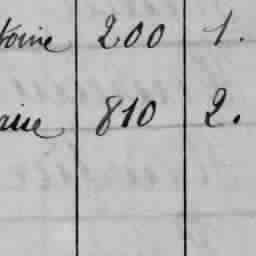 toine 200 1.
aire 810 2.